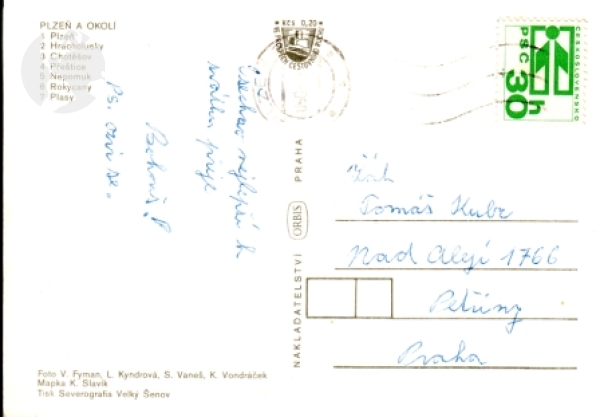 PLZEŇ A OKOLÍ
1 Plzeň
2 Hracholusky
3 Chotěšov
4 Přeštice
5 Nepomuk
6 Rokycany
7 Plasy
Všechno nejlepší k
svátku přeje
Ps. ozvi se.
Foto V. Fyman, L. Kyndrová, S. Vaneš, K. Vondráček
Mapka K. Slavík
Tisk Severografia Velký Šenov
NAKLADATELSTVÍ ORBIS PRAHA
KČS 0,20
ČESKOSLOVENSKO
PSČ 30h
Žák
Tomáš Kubr
Nad Alejí 1766
Petřiny
Praha